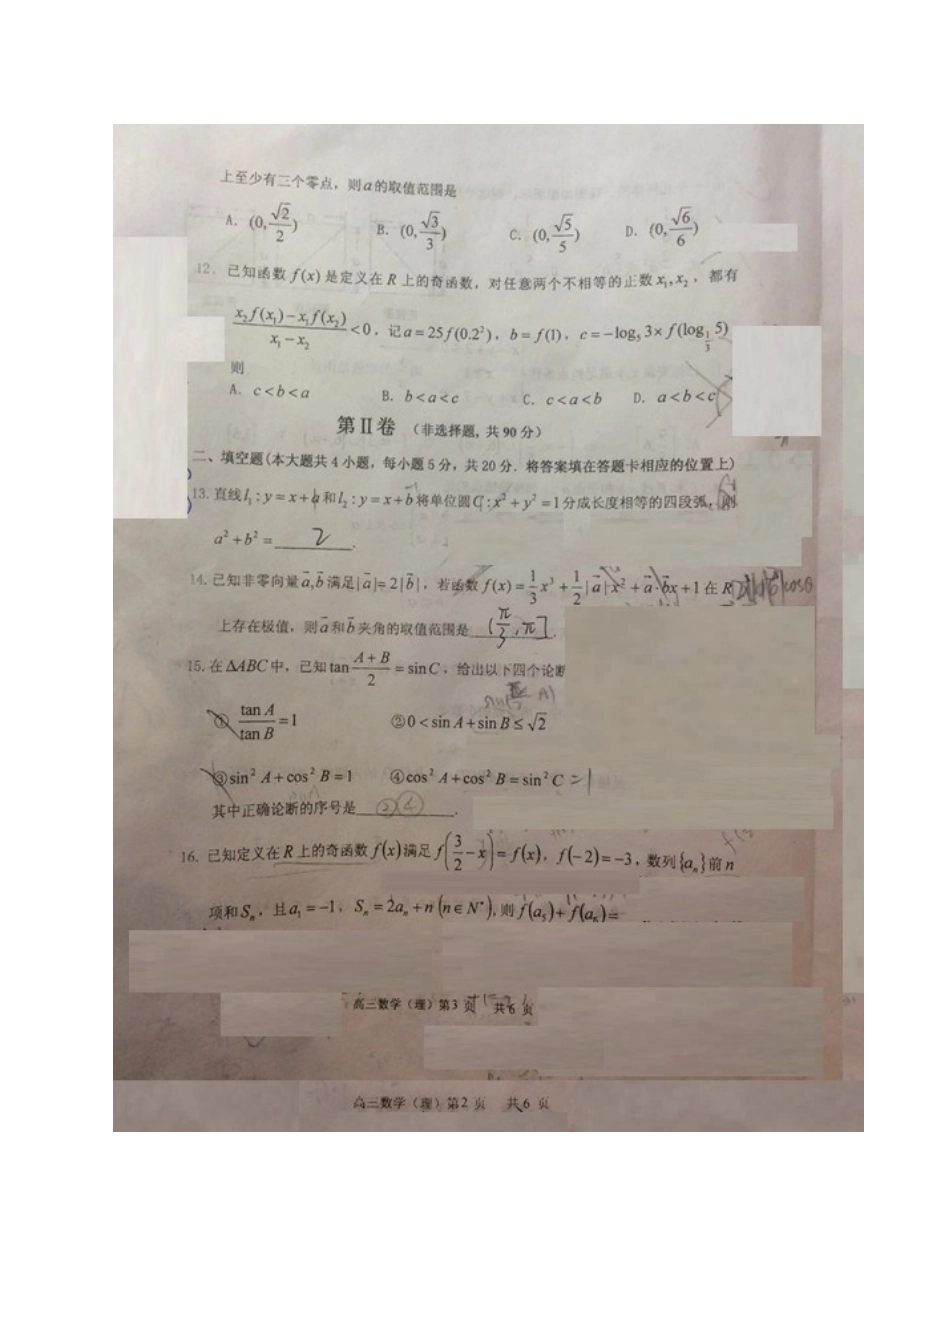 上至少有三个零点，则a的取值范围是
A. (0, √2/2) B. (0, √3/3) C. (0, √5/5) D. (0, √6/6)
12. 已知函数 f(x) 是定义在 R 上的奇函数，对任意两个不相等的正数 x₁,x₂，都有
(x₂f(x₁)-x₁f(x₂))/(x₁-x₂)<0，记a=25f(0.2²)，b=f(1)，c=-log₅3×f(log_{1/3}5)
则
A. c<b<a B. b<a<c C. c<a<b D. a<b<c
第Ⅱ卷 （非选择题, 共90分）
二、填空题(本大题共4小题，每小题5分，共20分．将答案填在答题卡相应的位置上)
13. 直线l₁:y=x+a和l₂:y=x+b将单位圆C:x²+y²=1分成长度相等的四段弧，则
a²+b²= 2 .
14. 已知非零向量a⃗,b⃗满足|a⃗|=2|b⃗|，若函数f(x)=1/3x³+1/2|a⃗|x²+a⃗·b⃗x+1在R
上存在极值，则a⃗和b⃗夹角的取值范围是 (π/3,π] .
15. 在ΔABC中，已知tan (A+B)/2=sinC，给出以下四个论断
① tanA/tanB=1 ②0<sinA+sinB≤√2
③sin²A+cos²B=1 ④cos²A+cos²B=sin²C =1
其中正确论断的序号是 ②④ .
16. 已知定义在R上的奇函数f(x)满足f(3/2-x)=f(x)，f(-2)=-3，数列{aₙ}前n
项和Sₙ，且a₁=-1，Sₙ=2aₙ+n(n∈N*)，则f(a₅)+f(a₆)=
高三数学（理）第3页 共6页
高三数学（理）第2页 共6页